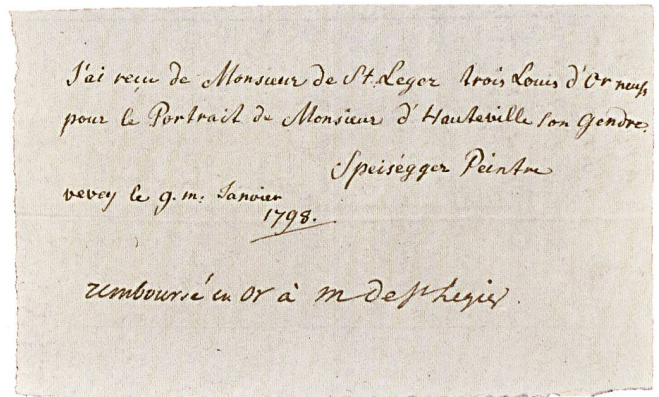 J'ai reçu de Monsieur de St. Leger trois Louis d'Or neufs
pour le Portrait de Monsieur d'Hauteville son Gendre.
Speisègger Peintre
vevey le 9. m: Janvier
1798.
remboursé en or à m de St Legier.